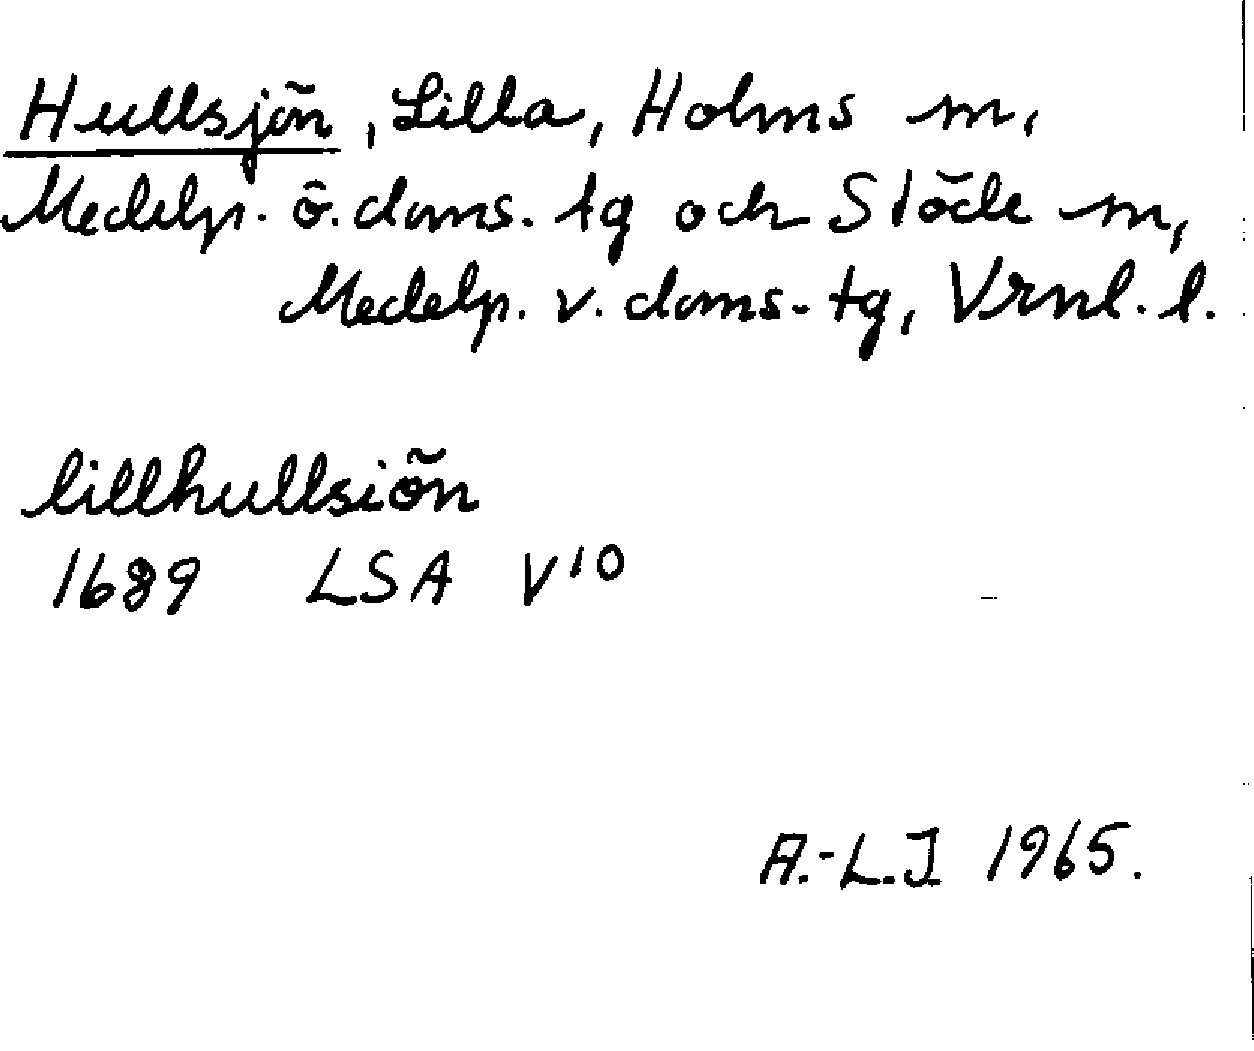 Hullsjön, Lilla, Holms sn,
Medelp. ö. doms. tg och Stöde sn,
Medelp. v. doms. tg, Vrnl. l.
lillhullsiön
1689 LSA V10
A.-L.J 1965.